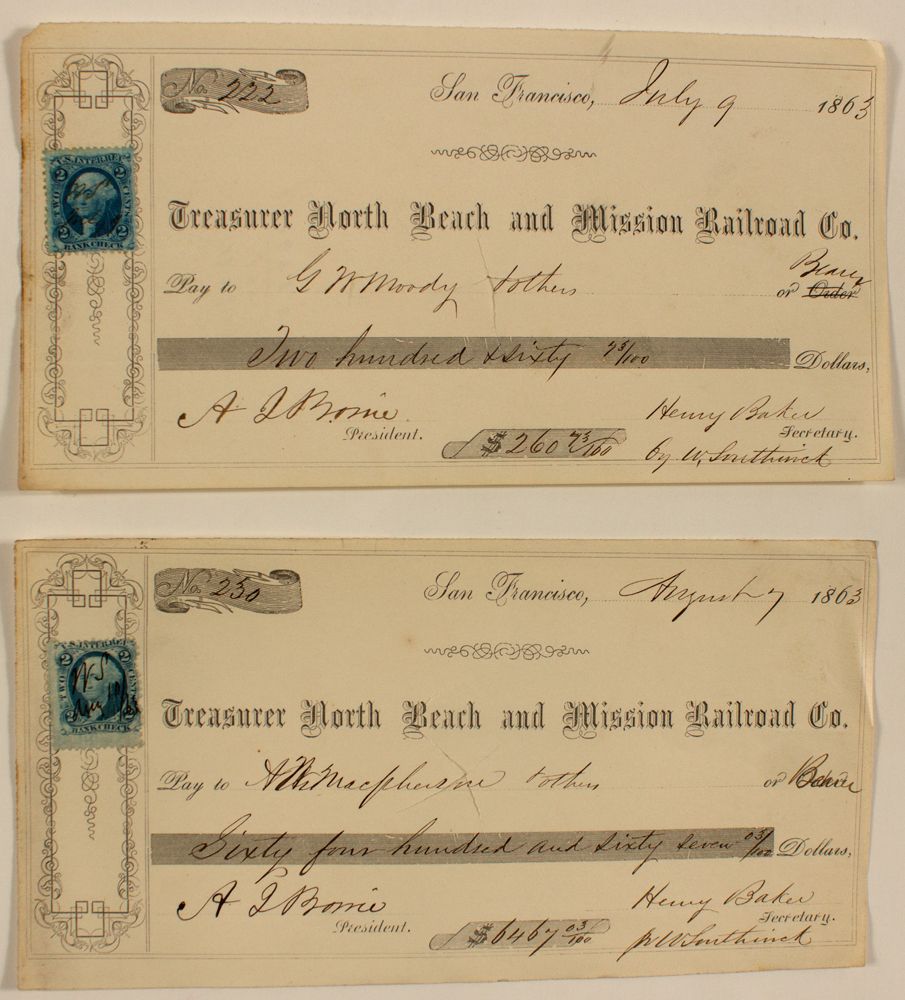 No. 222
San Francisco, July 9 1863
U.S. INTER. REV.
2 2
TWO CENTS
2 2
BANK CHECK
Treasurer North Beach and Mission Railroad Co.
Bearer
Pay to G W Moody & others or Order
Two hundred & sixty 73/100 Dollars,
A J Bowie Henry Baker
President. Secretary.
$ 260 73/100 by W. Southwick
No. 230
San Francisco, August 7 1863
U.S. INTER. REV.
2 2
TWO CENTS
WS
Aug 10/63
BANK CHECK
Treasurer North Beach and Mission Railroad Co.
Pay to & others or Bearer
Sixty four hundred and sixty seven 03/100 Dollars,
A J Bowie Henry Baker
President. Secretary.
$ 6467 03/100 pr W Southwick